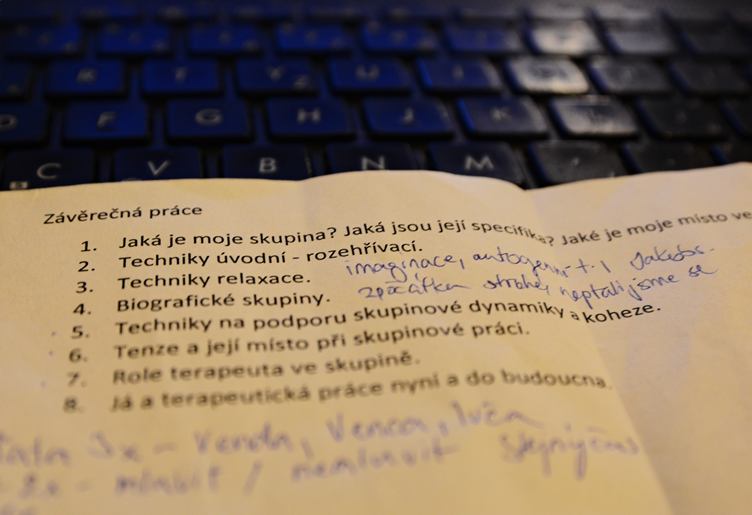 R T Z U I
D F G H J K
C V B N M
Závěrečná práce
1. Jaká je moje skupina? Jaká jsou její specifika? Jaké je moje místo ve
2. Techniky úvodní - rozehřívací.
3. Techniky relaxace. imaginace, autogenní t.,
4. Biografické skupiny. zpočátku strohé, neptali jsme se
5. Techniky na podporu skupinové dynamiky a koheze.
6. Tenze a její místo při skupinové práci.
7. Role terapeuta ve skupině.
8. Já a terapeutická práce nyní a do budoucna.
3x - Venda, Venca,
2x - mluvit / nemluvit